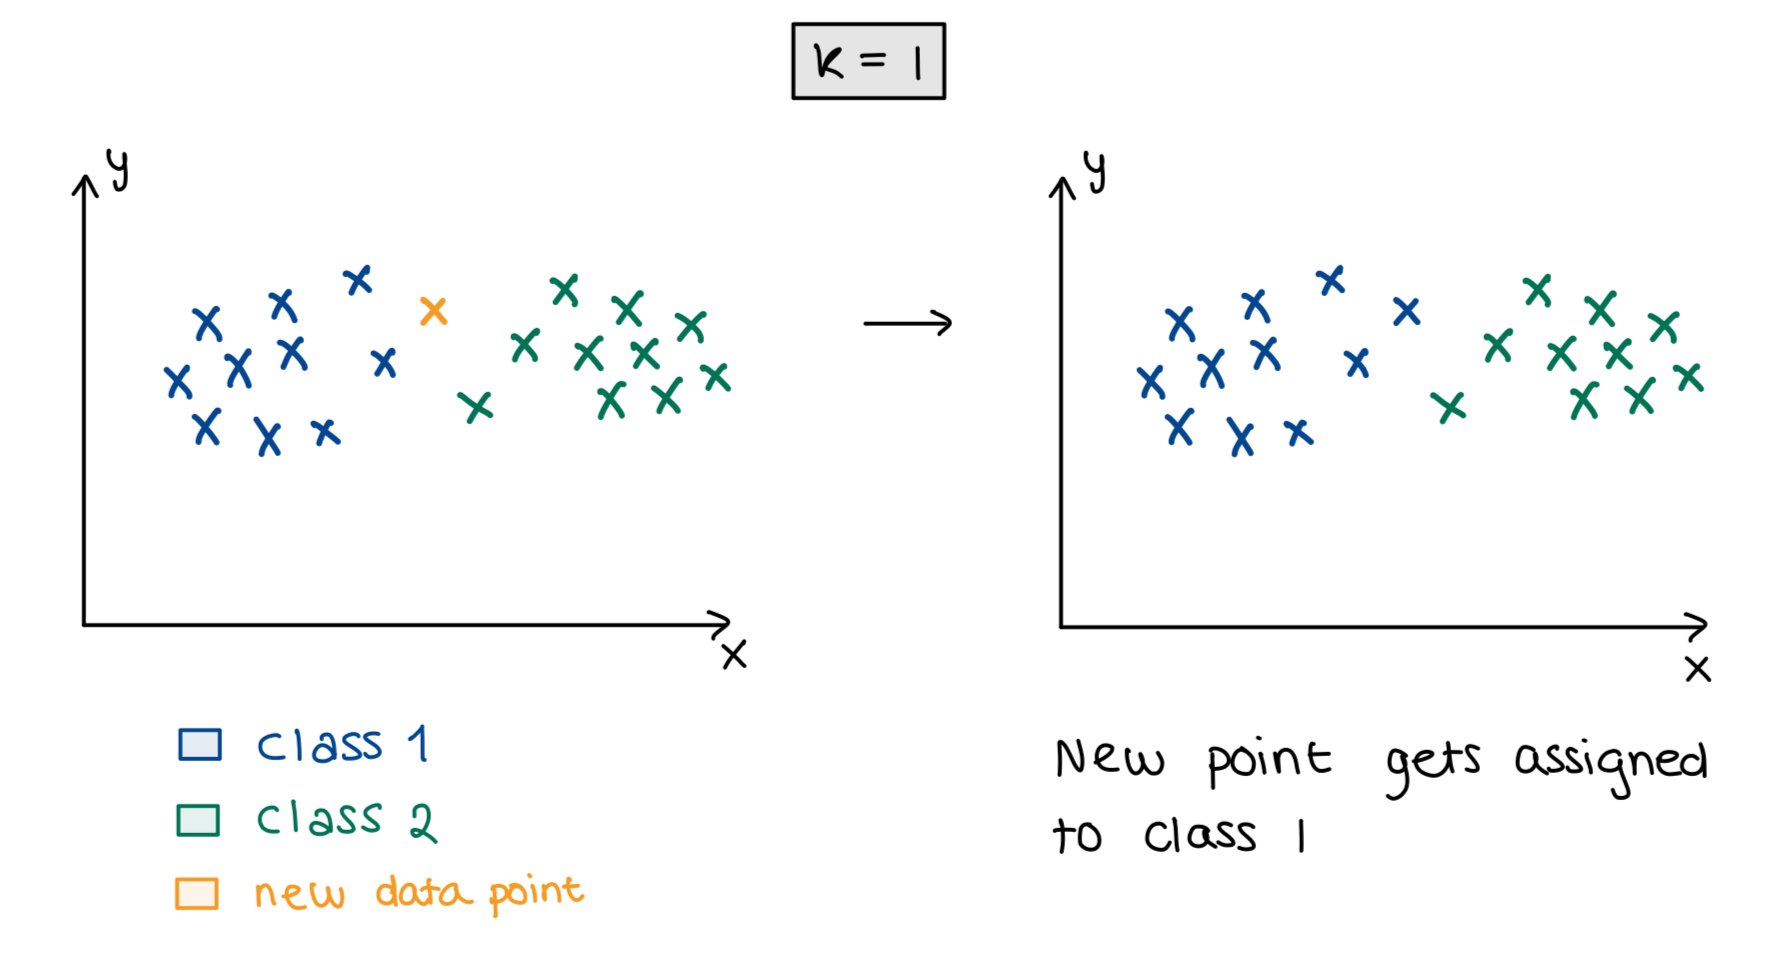 K = 1
y
x
class 1
class 2
new data point
y
x
New point gets assigned
to class 1